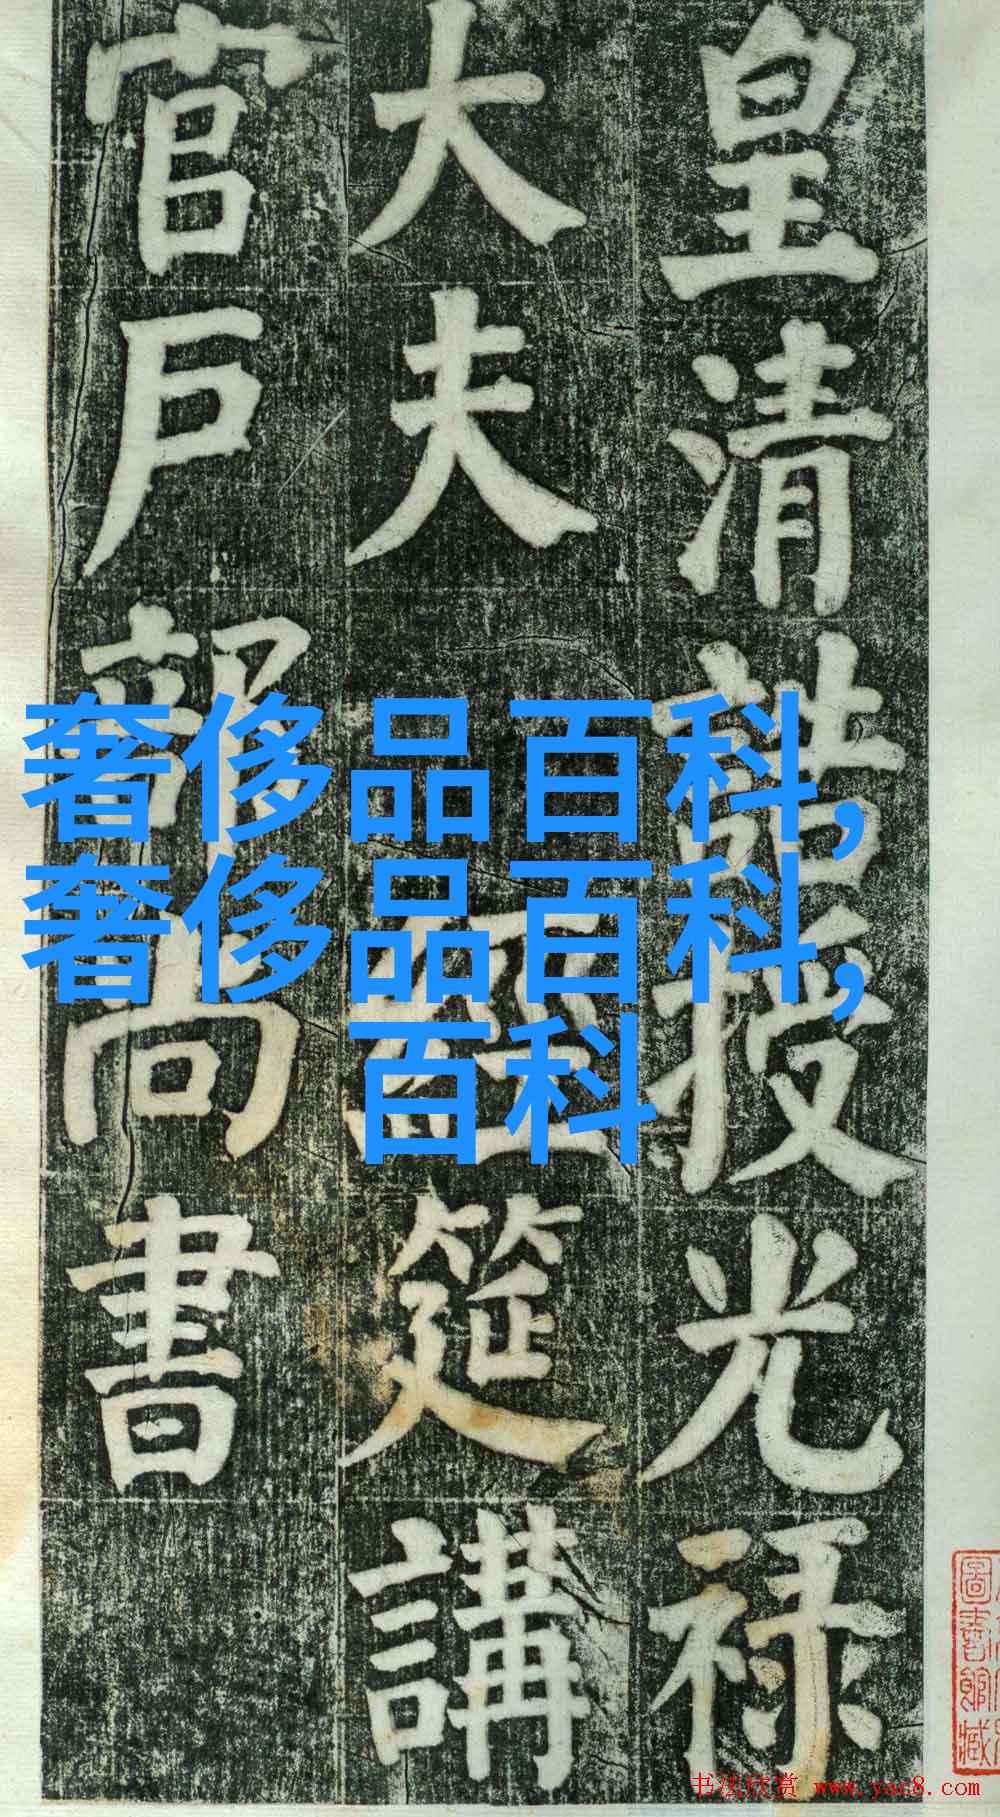 皇清誥授光禄
大夫 經筵講
官戶部尚書
奢侈品百科,
奢侈品百科,
百科
圖書館藏
书法欣赏 www.yac8.com